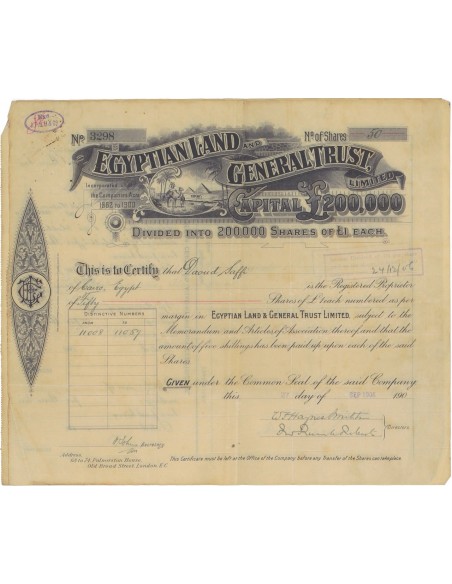 No. 3298
No. of Shares 50
EGYPTIAN LAND AND
GENERAL TRUST,
LIMITED
Incorporated under
the Companies Acts
1862 to 1900
CAPITAL, £200,000
DIVIDED INTO 200,000 SHARES OF £1 EACH.
24/12/06
This is to Certify that Daoud
of Cairo, Egypt is the Registered Proprietor
of Fifty Shares of £1 each numbered as per
DISTINCTIVE NUMBERS
FROM TO
11008 11057
margin in EGYPTIAN LAND & GENERAL TRUST LIMITED, subject to the
Memorandum and Articles of Association thereof and that the
amount of five shillings has been paid up upon each of the said
Shares
GIVEN under the Common Seal of the said Company
this day of SEP 190
Directors
Secretary
Address,
Palmerston House,
Old Broad Street, London, E.C.
This Certificate must be left at the Office of the Company before any Transfer of the Shares can take place.